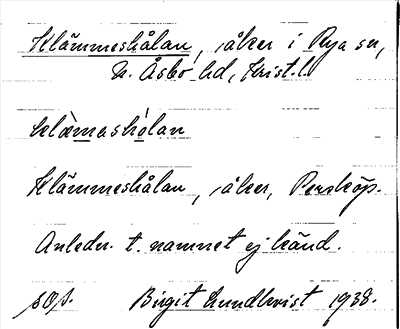 Klämmeshålan, åker i Rya sn,
N. Åsbo hd, Krist. l.
klæ̀mashólan
Klämmeshålan, åker, Perstorp.
Anledn. t. namnet ej känd.
Birgit Lundkvist 1938.